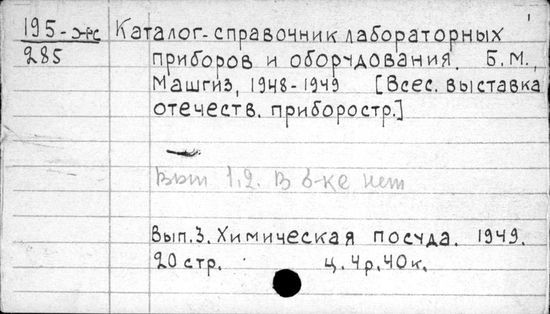 1
195-хрс Каталог-справочник лабораторных
285 приборов и оборудования. Б.М.,
Машгиз, 1948-1949 [Всес. выставка
отечеств. приборостр.]
Вып 1,2. В б-ке нет
Вып.3. Химическая посуда. 1949.
20 стр. ц. 4р.40к.